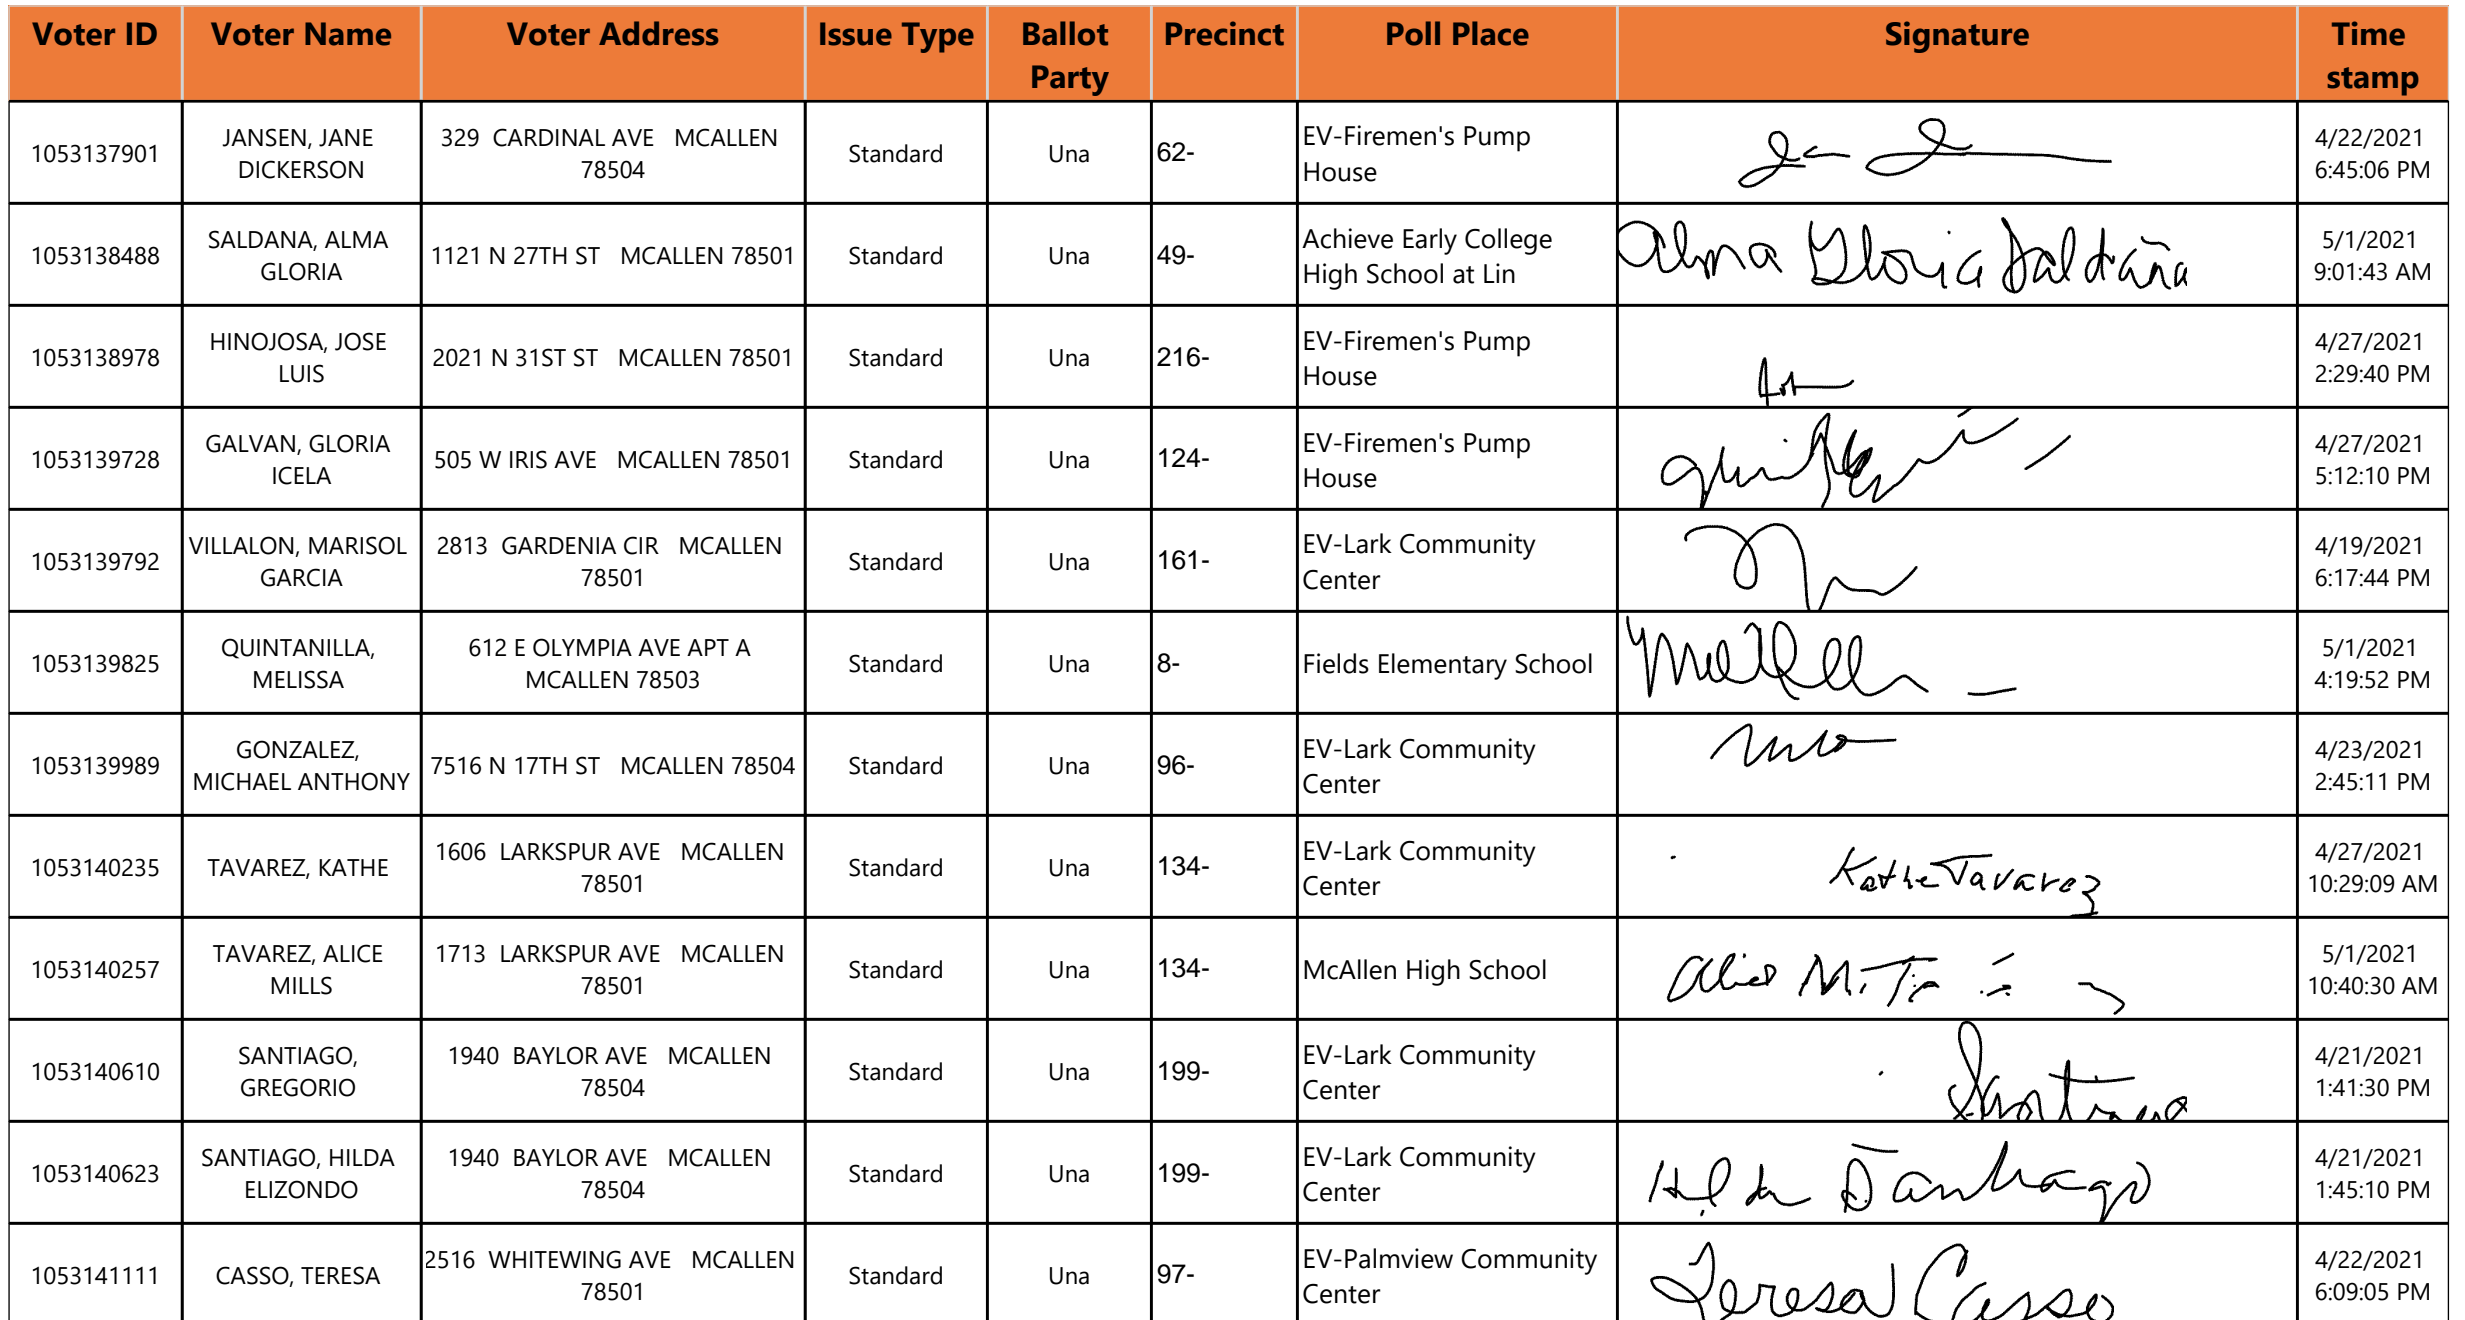 Voter ID Voter Name Voter Address Issue Type Ballot Party Precinct Poll Place Signature Time stamp
1053137901 JANSEN, JANE DICKERSON 329 CARDINAL AVE MCALLEN 78504 Standard Una 62- EV-Firemen's Pump House 4/22/2021 6:45:06 PM
1053138488 SALDANA, ALMA GLORIA 1121 N 27TH ST MCALLEN 78501 Standard Una 49- Achieve Early College High School at Lin Alma Gloria Saldaña 5/1/2021 9:01:43 AM
1053138978 HINOJOSA, JOSE LUIS 2021 N 31ST ST MCALLEN 78501 Standard Una 216- EV-Firemen's Pump House 4/27/2021 2:29:40 PM
1053139728 GALVAN, GLORIA ICELA 505 W IRIS AVE MCALLEN 78501 Standard Una 124- EV-Firemen's Pump House 4/27/2021 5:12:10 PM
1053139792 VILLALON, MARISOL GARCIA 2813 GARDENIA CIR MCALLEN 78501 Standard Una 161- EV-Lark Community Center 4/19/2021 6:17:44 PM
1053139825 QUINTANILLA, MELISSA 612 E OLYMPIA AVE APT A MCALLEN 78503 Standard Una 8- Fields Elementary School 5/1/2021 4:19:52 PM
1053139989 GONZALEZ, MICHAEL ANTHONY 7516 N 17TH ST MCALLEN 78504 Standard Una 96- EV-Lark Community Center 4/23/2021 2:45:11 PM
1053140235 TAVAREZ, KATHE 1606 LARKSPUR AVE MCALLEN 78501 Standard Una 134- EV-Lark Community Center Kathe Tavarez 4/27/2021 10:29:09 AM
1053140257 TAVAREZ, ALICE MILLS 1713 LARKSPUR AVE MCALLEN 78501 Standard Una 134- McAllen High School Alice M. 5/1/2021 10:40:30 AM
1053140610 SANTIAGO, GREGORIO 1940 BAYLOR AVE MCALLEN 78504 Standard Una 199- EV-Lark Community Center 4/21/2021 1:41:30 PM
1053140623 SANTIAGO, HILDA ELIZONDO 1940 BAYLOR AVE MCALLEN 78504 Standard Una 199- EV-Lark Community Center Hilda Santiago 4/21/2021 1:45:10 PM
1053141111 CASSO, TERESA 2516 WHITEWING AVE MCALLEN 78501 Standard Una 97- EV-Palmview Community Center Teresa Casso 4/22/2021 6:09:05 PM